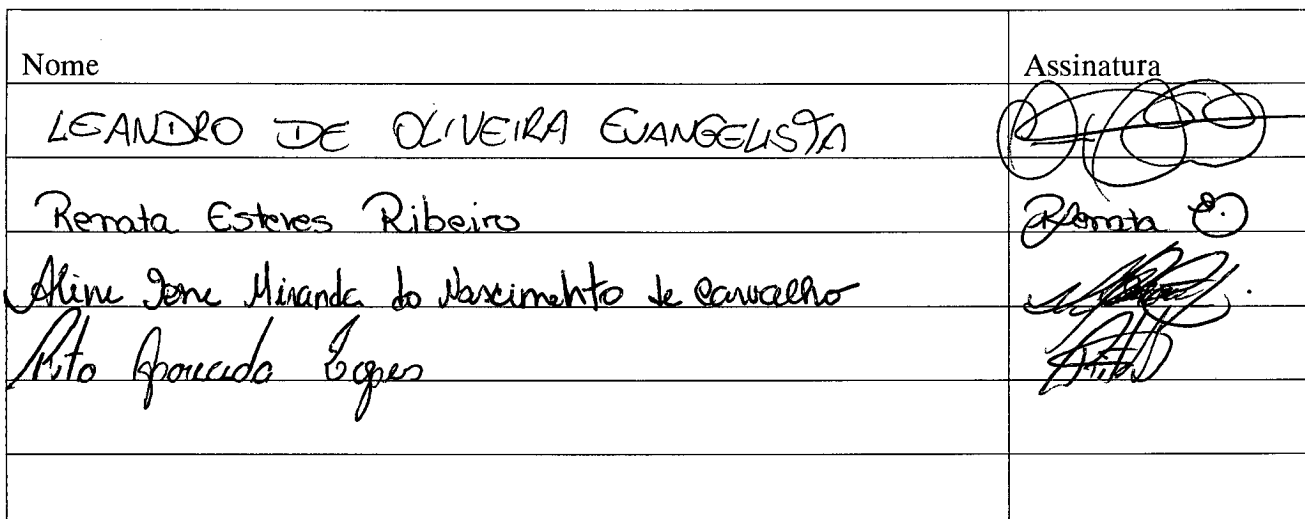 Nome Assinatura
LEANDRO DE OLIVEIRA EVANGELISTA
Renata Esteves Ribeiro Renata E.
Aline Ione Miranda do Nascimento de Carvalho
Rito Aparecido Lopes Rito